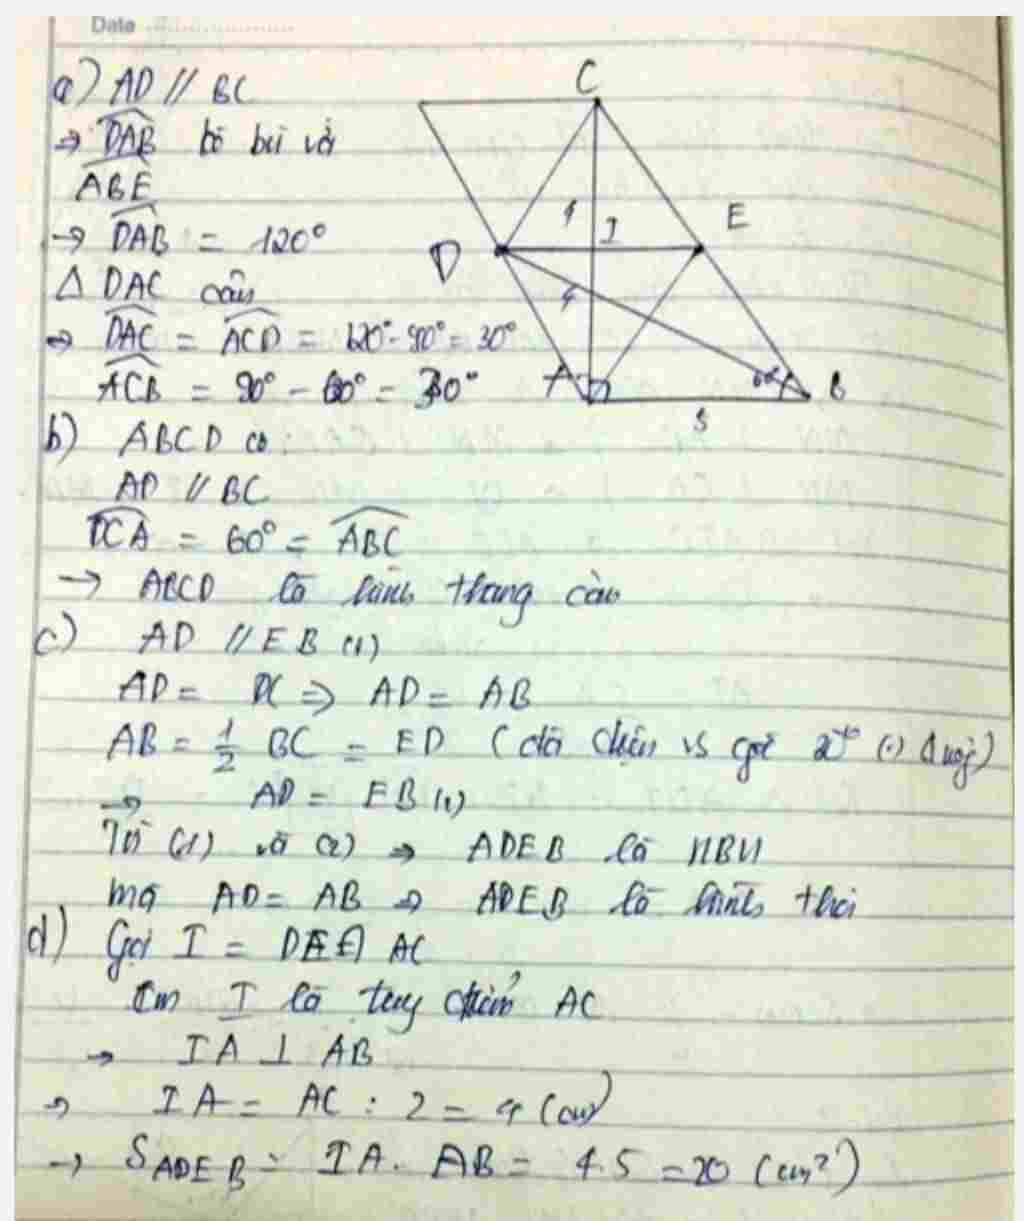 Date
a) AD // BC
→ DAB bù với
ABE
→ DAB = 120°
Δ DAC cân
→ DAC = ACD = 120° - 90° = 30°
ACB = 90° - 60° = 30°
b) ABCD có
AD // BC
DCA = 60° = ABC
→ ABCD là hình thang cân
c) AD // EB (1)
AD = DC ⇒ AD = AB
AB = 1/2 BC = ED (đối diện vs góc
→ AD = EB
Từ (1) và (2) ⇒ ADEB là HBH
mà AD = AB ⇒ ADEB là hình thoi
d) Gọi I = DE ∩ AC
Cm I là điểm AC
→ IA ⊥ AB
→ IA = AC : 2 = 4 (cm)
→ S ADEB = IA. AB = 4.5 = 20 (cm²)
C
D
E
I
4
4
A
B
60°
5